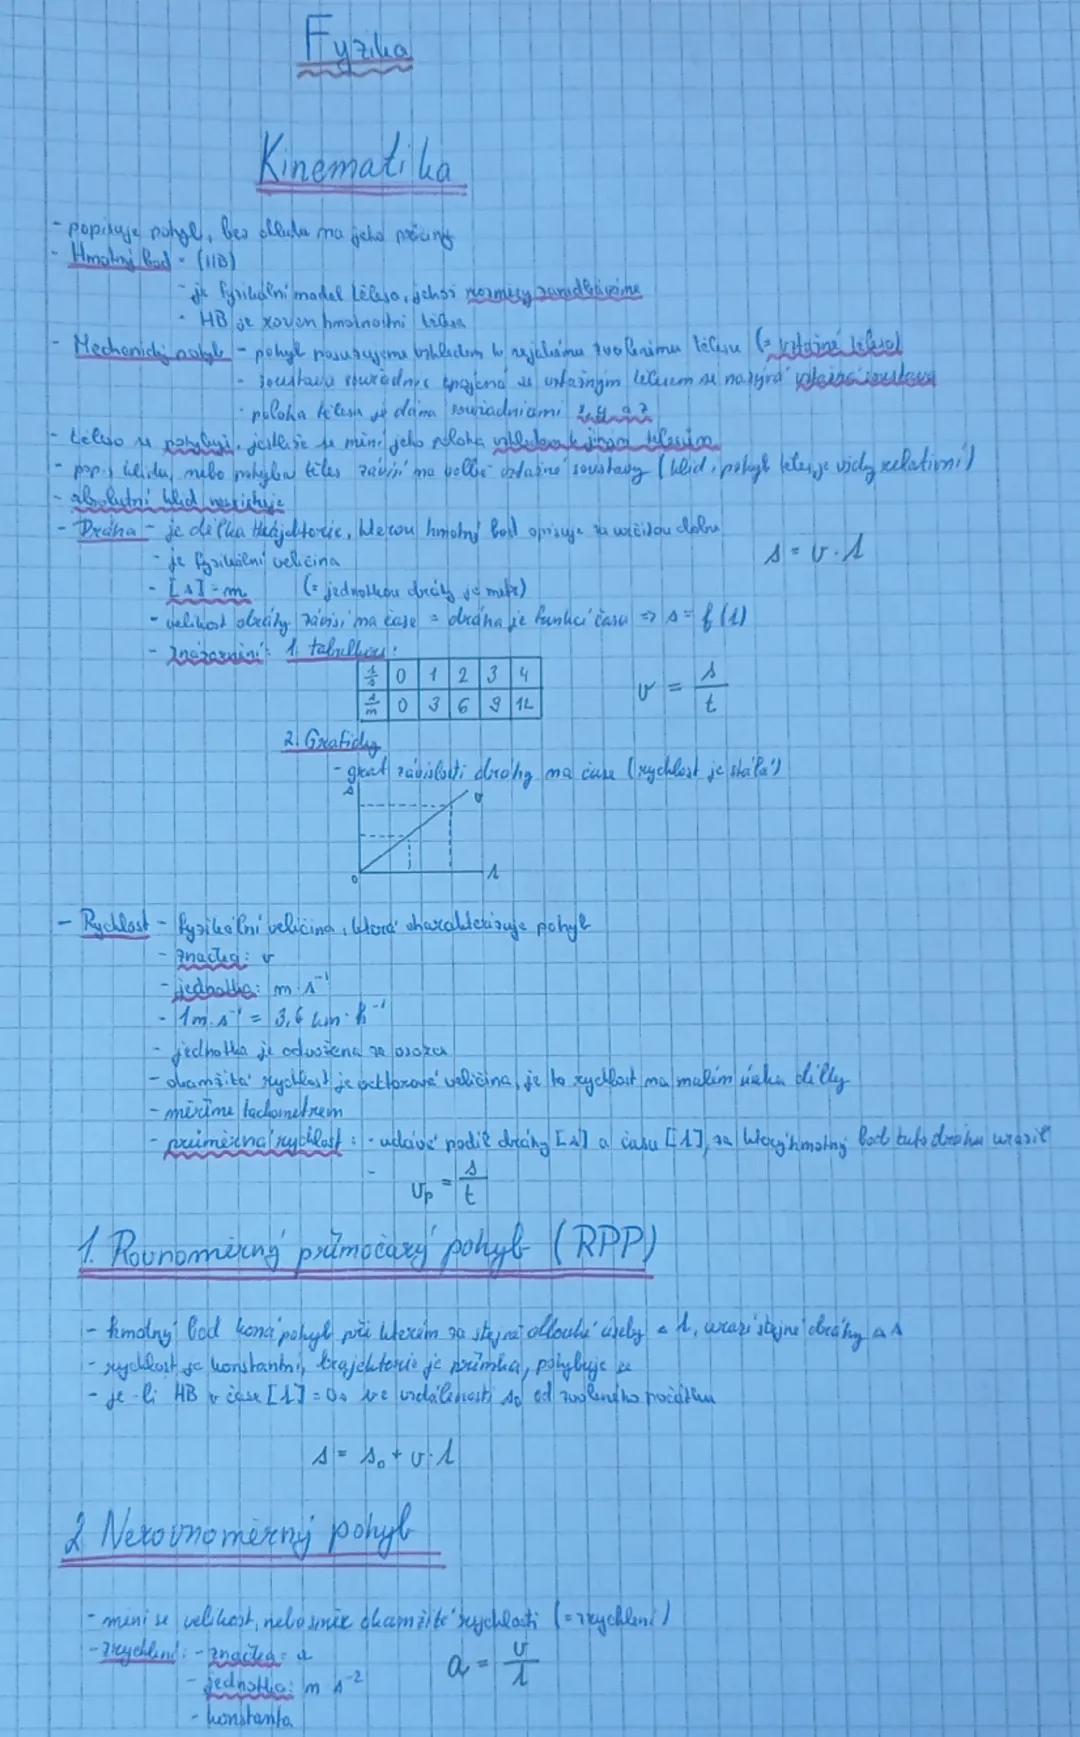 Fyzika
Kinematika
- popisuje pohyb, bez ohledu na jeho příčiny
- Hmotný bod - (HB)
- je fyzikální model tělesa, jehož rozměry zanedbáváme
- HB je roven hmotnosti tělesa
- Mechanický pohyb - pohyb posuzujeme vzhledem k nějakému zvolenému tělesu (= vztažné těleso)
- soustava souřadnic spojená se vztažným tělesem se nazývá vztažná soustava
- poloha tělesa je dána souřadnicemi x, y a z
- těleso se pohybuje, jestliže se mění jeho poloha vzhledem k jiným tělesům
- popis klidu, nebo pohybu těles závisí na volbě vztažné soustavy (klid, pohyb těles je vždy relativní)
- absolutní klid neexistuje
- Dráha - je délka trajektorie, kterou hmotný bod opisuje za určitou dobu
s = v · t
- je fyzikální veličina
- [s] = m (= jednotkou dráhy je metr)
- velikost dráhy závisí na čase = dráha je funkcí času => s = f (t)
- znázornění: 1. tabulkou:
t/s 0 1 2 3 4
s/m 0 3 6 9 12
v = s/t
2. Graficky
- graf závislosti dráhy na čase (rychlost je stálá)
s v
0 t
- Rychlost - fyzikální veličina, která charakterizuje pohyb
- značka: v
- jednotka: m · s⁻¹
- 1m · s⁻¹ = 3,6 km · h⁻¹
- jednotka je odvozena ze vzorce
- okamžitá rychlost je vektorová veličina, je to rychlost na malém úseku délky
- měříme tachometrem
- průměrná rychlost: - udává podíl dráhy [s] a času [t], za který hmotný bod tuto dráhu urazil
- vₚ = s/t
1. Rovnoměrný přímočarý pohyb (RPP)
- hmotný bod koná pohyb při kterém za stejně dlouhé úseky Δ t, urazí stejné dráhy Δ s
- rychlost je konstantní, trajektorie je přímka, pohybuje se
- je-li HB v čase [t] = 0s ve vzdálenosti s₀ od zvoleného počátku
s = s₀ + v · t
2 Nerovnoměrný pohyb
- mění se velikost, nebo směr okamžité rychlosti (= zrychlení)
- zrychlení: - značka = a
a = v/t
- jednotka: m s⁻²
- konstanta